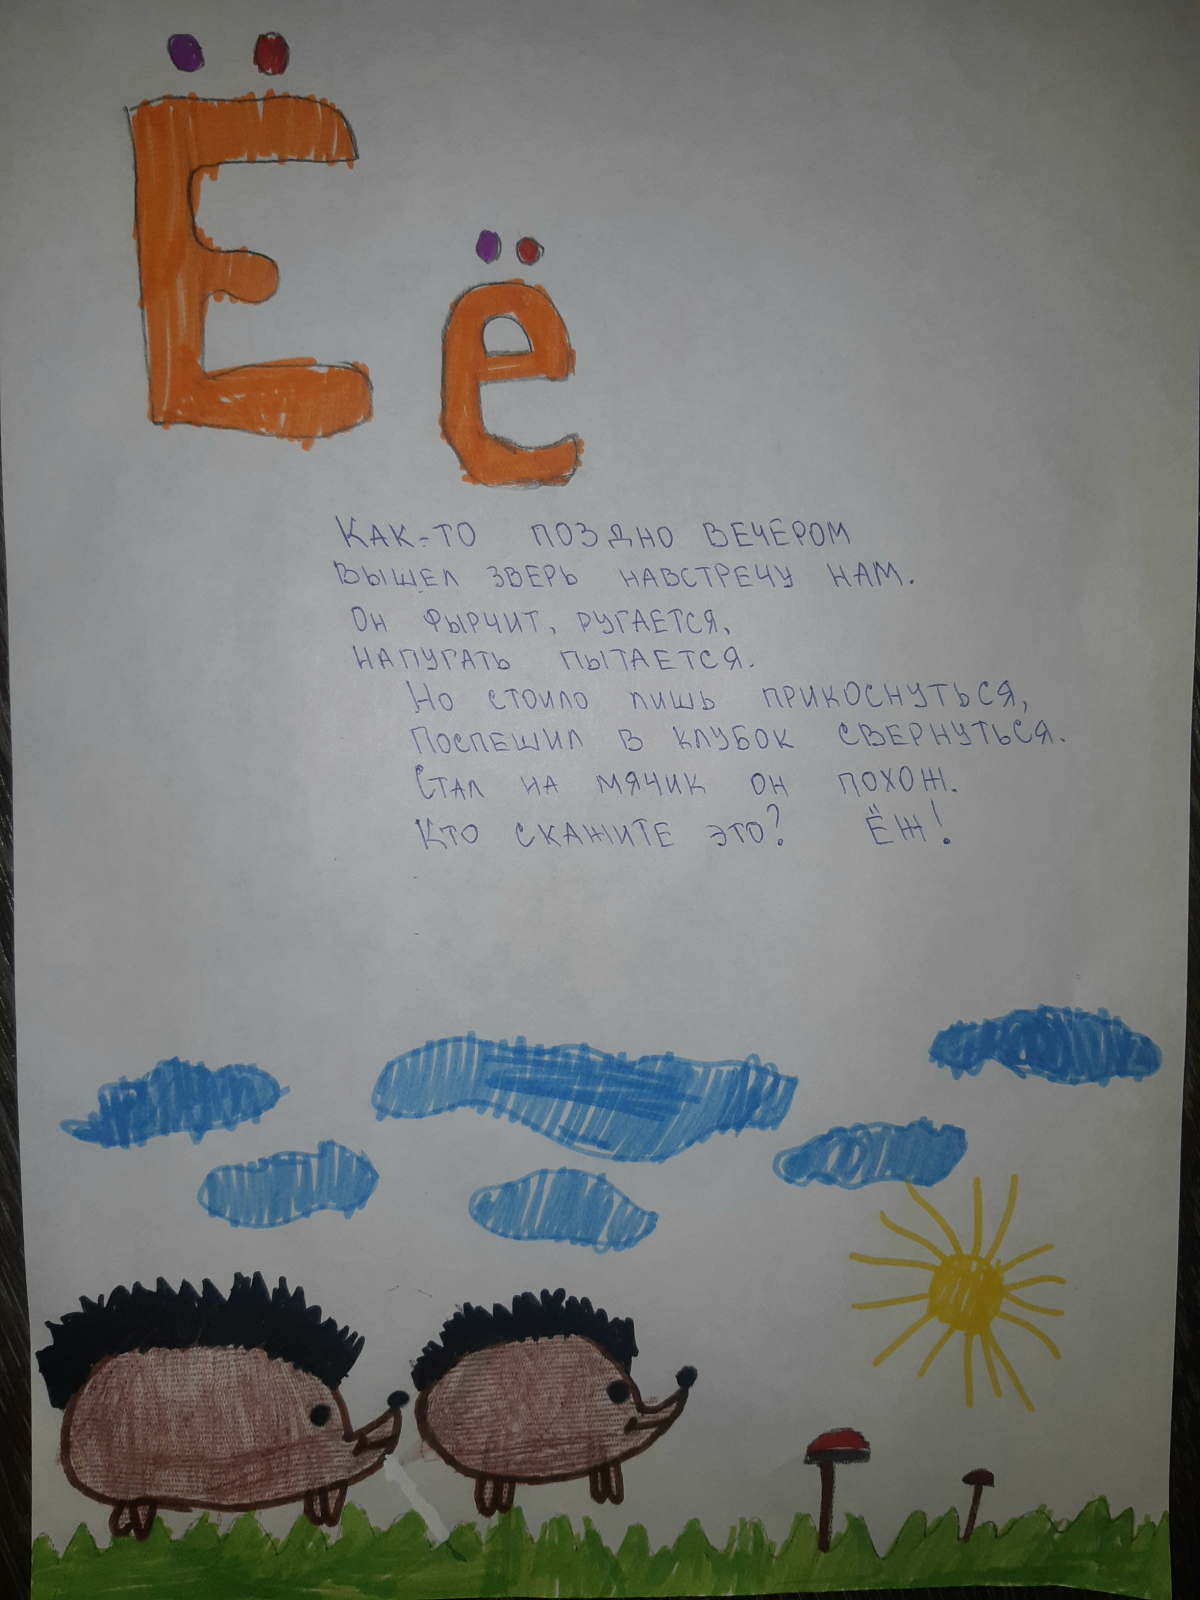 Ё ё
Как-то поздно вечером
вышел зверь навстречу нам.
Он фырчит, ругается,
напугать пытается.
Но стоило лишь прикоснуться,
Поспешил в клубок свернуться.
Стал на мячик он похож.
Кто скажите это? Ёж!